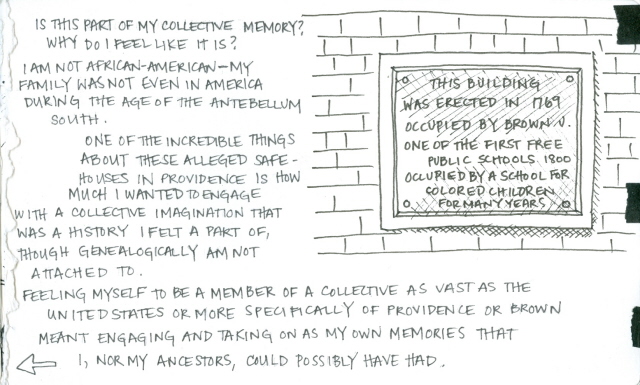 IS THIS PART OF MY COLLECTIVE MEMORY?
WHY DO I FEEL LIKE IT IS?
I AM NOT AFRICAN-AMERICAN—MY
FAMILY WAS NOT EVEN IN AMERICA
DURING THE AGE OF THE ANTEBELLUM
SOUTH.
ONE OF THE INCREDIBLE THINGS
ABOUT THESE ALLEGED SAFE-
HOUSES IN PROVIDENCE IS HOW
MUCH I WANTED TO ENGAGE
WITH A COLLECTIVE IMAGINATION THAT
WAS A HISTORY I FELT A PART OF,
THOUGH GENEALOGICALLY AM NOT
ATTACHED TO.
FEELING MYSELF TO BE A MEMBER OF A COLLECTIVE AS VAST AS THE
UNITED STATES OR MORE SPECIFICALLY OF PROVIDENCE OR BROWN
MEANT ENGAGING AND TAKING ON AS MY OWN MEMORIES THAT
I, NOR MY ANCESTORS, COULD POSSIBLY HAVE HAD.
THIS BUILDING
WAS ERECTED IN 1769
OCCUPIED BY BROWN U.
ONE OF THE FIRST FREE
PUBLIC SCHOOLS 1800
OCCUPIED BY A SCHOOL FOR
COLORED CHILDREN
FOR MANY YEARS